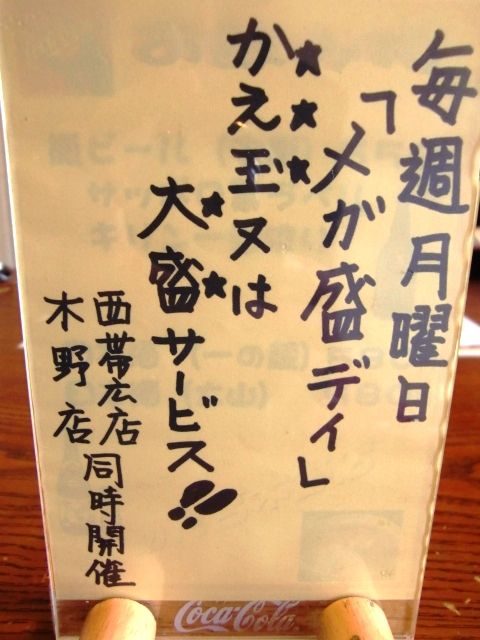 毎週月曜日
「メガ盛ディ」
★★★
かえ玉又は
★★
大盛サービス!!
西帯広店
木野店
同時開催
Coca-Cola